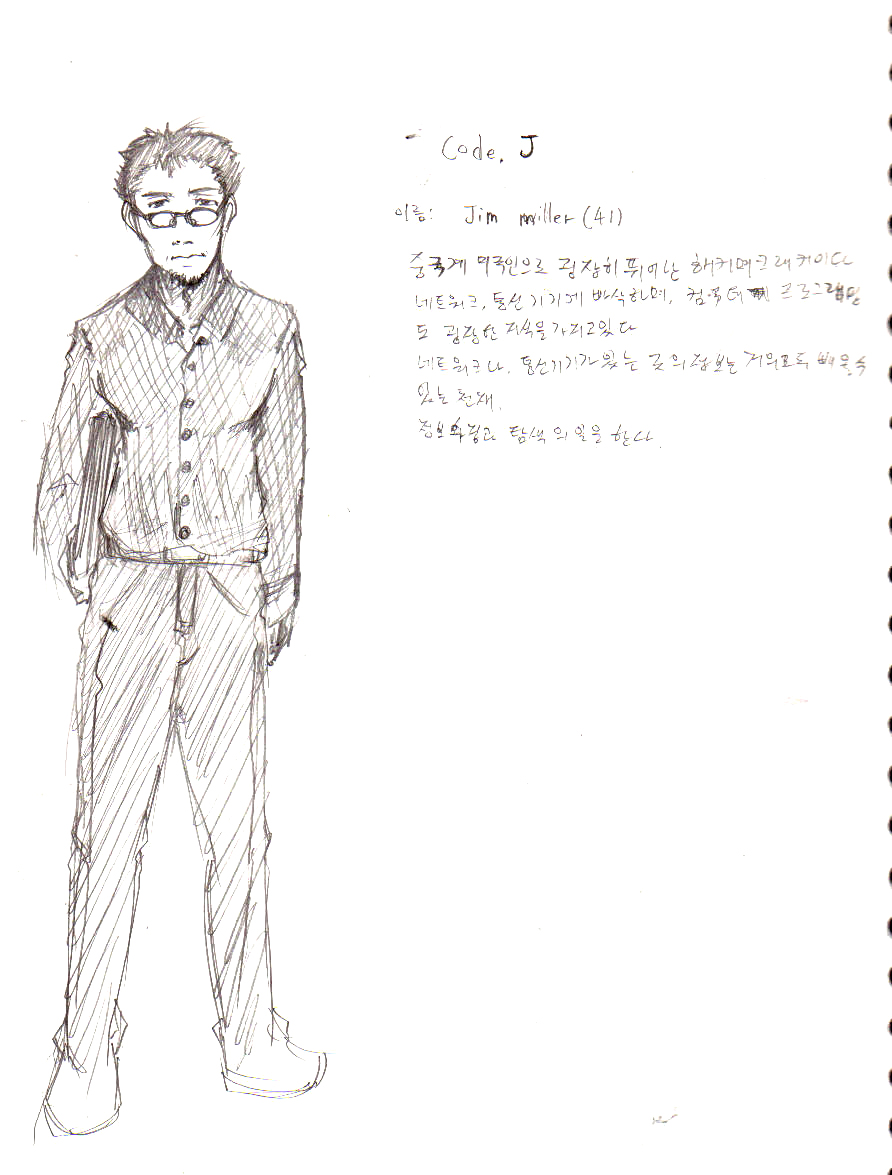 Code. J
이름: Jim miller (41)
중국계 미국인으로 굉장히 뛰어난 해커며 크래커이다
네트워크, 통신기기에 빠삭하며, 컴퓨터 프로그래밍
도 굉장한 지식을 가지고있다
네트워크나, 통신기기가 있는 곳의 정보는 거의모두 빼올수
있는 천재.
정보수집과 탐색의 일을 한다.